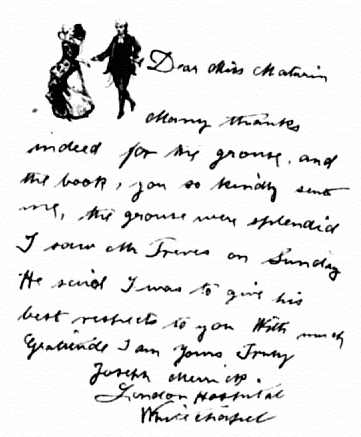 Dear Miss Maturin
Many thanks
indeed for the grouse, and
the book, you so kindly sent
me, the grouse were splendid
I saw Mr Treves on Sunday
He said I was to give his
best respects to you With much
Gratitude I am Yours Truly
Joseph Merrick.
London Hospital
Whitechapel